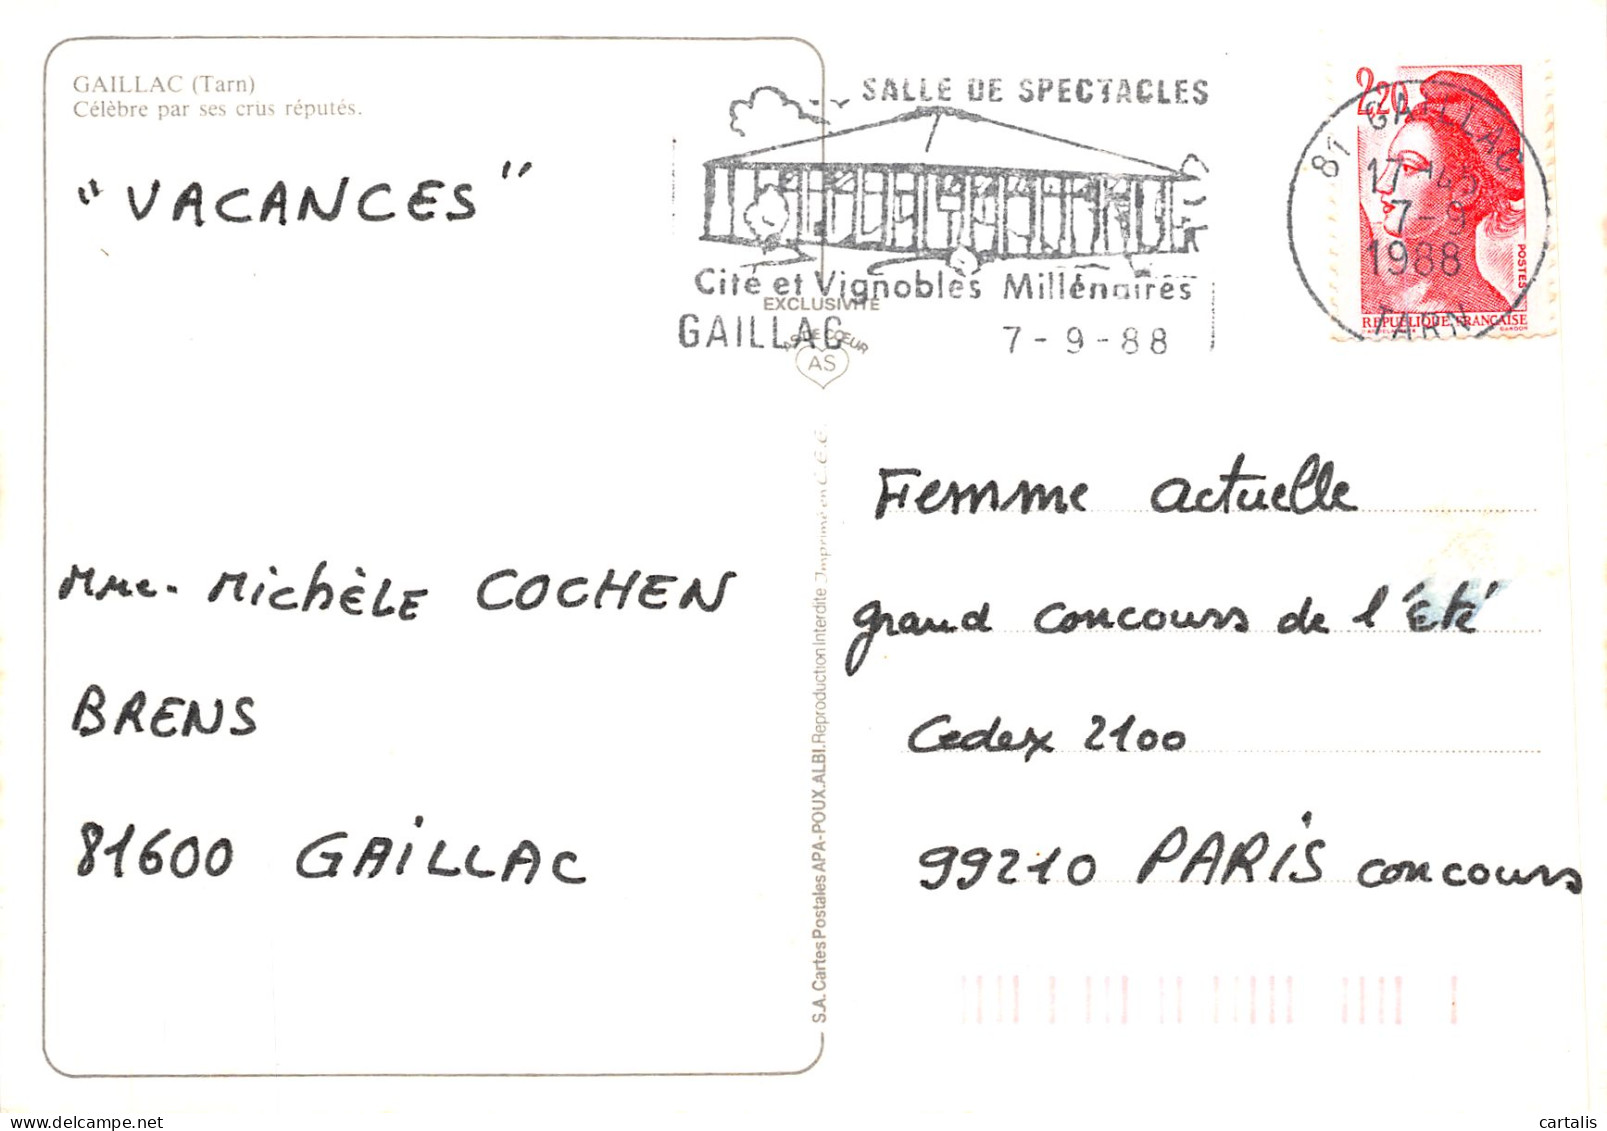 GAILLAC (Tarn)
Célèbre par ses crus réputés.
"VACANCES"
SALLE DE SPECTACLES
Cité et Vignobles Millénaires
GAILLAC 7-9-88
EXCLUSIVITÉ
AS DE CŒUR
AS
81 GAILLAC
17H
7-9
1988
TARN
2,20
POSTES
REPUBLIQUE FRANÇAISE
GANDON
Mme. Michèle COCHEN
BRENS
81600 GAILLAC
S.A. Cartes Postales APA-POUX. ALBI. Reproduction Interdite Imprimé en C.E.E.
Femme actuelle
grand concours de l'été
Cedex 2100
99210 PARIS concours
cartalis